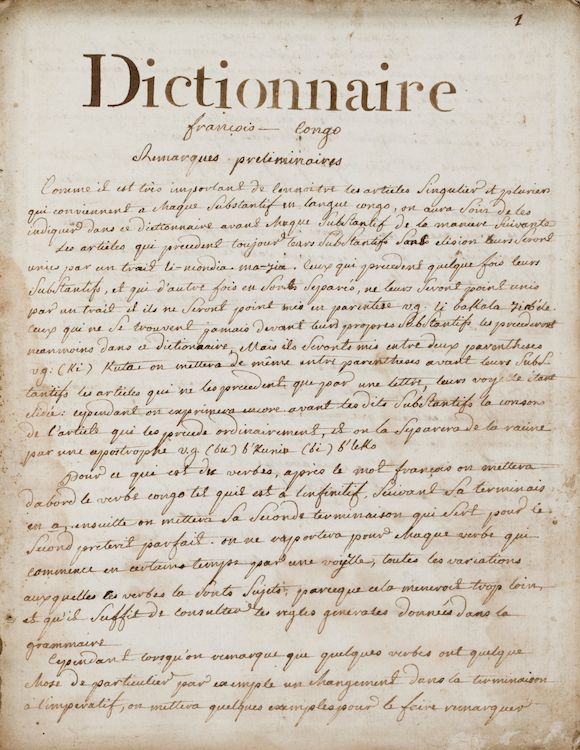 1
Dictionnaire
françois — Congo
Remarques preliminaires
Comme il est très important de connoitre les articles Singulier et pluriers
qui conviennent a chaque Substantif en langue congo, on aura Soin de les
indiquer dans ce dictionnaire avant chaque Substantif de la maniere Suivante
Les articles qui precedent toujours leurs Substantifs Sans elision leurs Seront
unies par un trait le-mondia ma-zia. Ceux qui precedent quelque fois leurs
Substantifs, et qui d'autre fois en Sont Separés, ne leurs Seront point unis
par un trait et ils ne Seront point mis en parentese vg. li bakala
ceux qui ne se trouvent jamais devant leurs propres Substantifs les precederont
neanmoins dans ce dictionnaire, Mais ils Seronts mis entre deux parentheses
vg: (Ki) Kutu on mettera de même entre parentheses avant leurs Subs
tantifs les articles qui ne les precedent que par une lettre, leurs voyelle étant
elidée: cependant on exprimera encore avant les dits Substantifs la conson
de l'article qui les precede ordinairement, et on la Separera de la racine
par une apostrophe vg (bu) b'Kunia (bi) b'leko
Pour ce qui est des verbes, après le mot françois on mettera
d'abord le verbe congo tel qu'il est à l'infinitif, Suivant Sa terminais
en a, ensuitte on mettera Sa Seconde terminaison qui Sert pour le
Second preterit parfait. on ne rapportera pour chaque verbe qui
commence en certains temps par une voyelle, toutes les variations
auxquelles les verbes la Sonts Sujets, parceque cela meneroit trop loin,
et qu'il Suffit de consulter les regles generales données dans la
grammaire
Cependant lorsqu'on remarque que quelques verbes ont quelque
chose de particulier par exemple un changement dans la terminaison
a l'imperatif, on mettera quelques exemples pour le faire remarquer